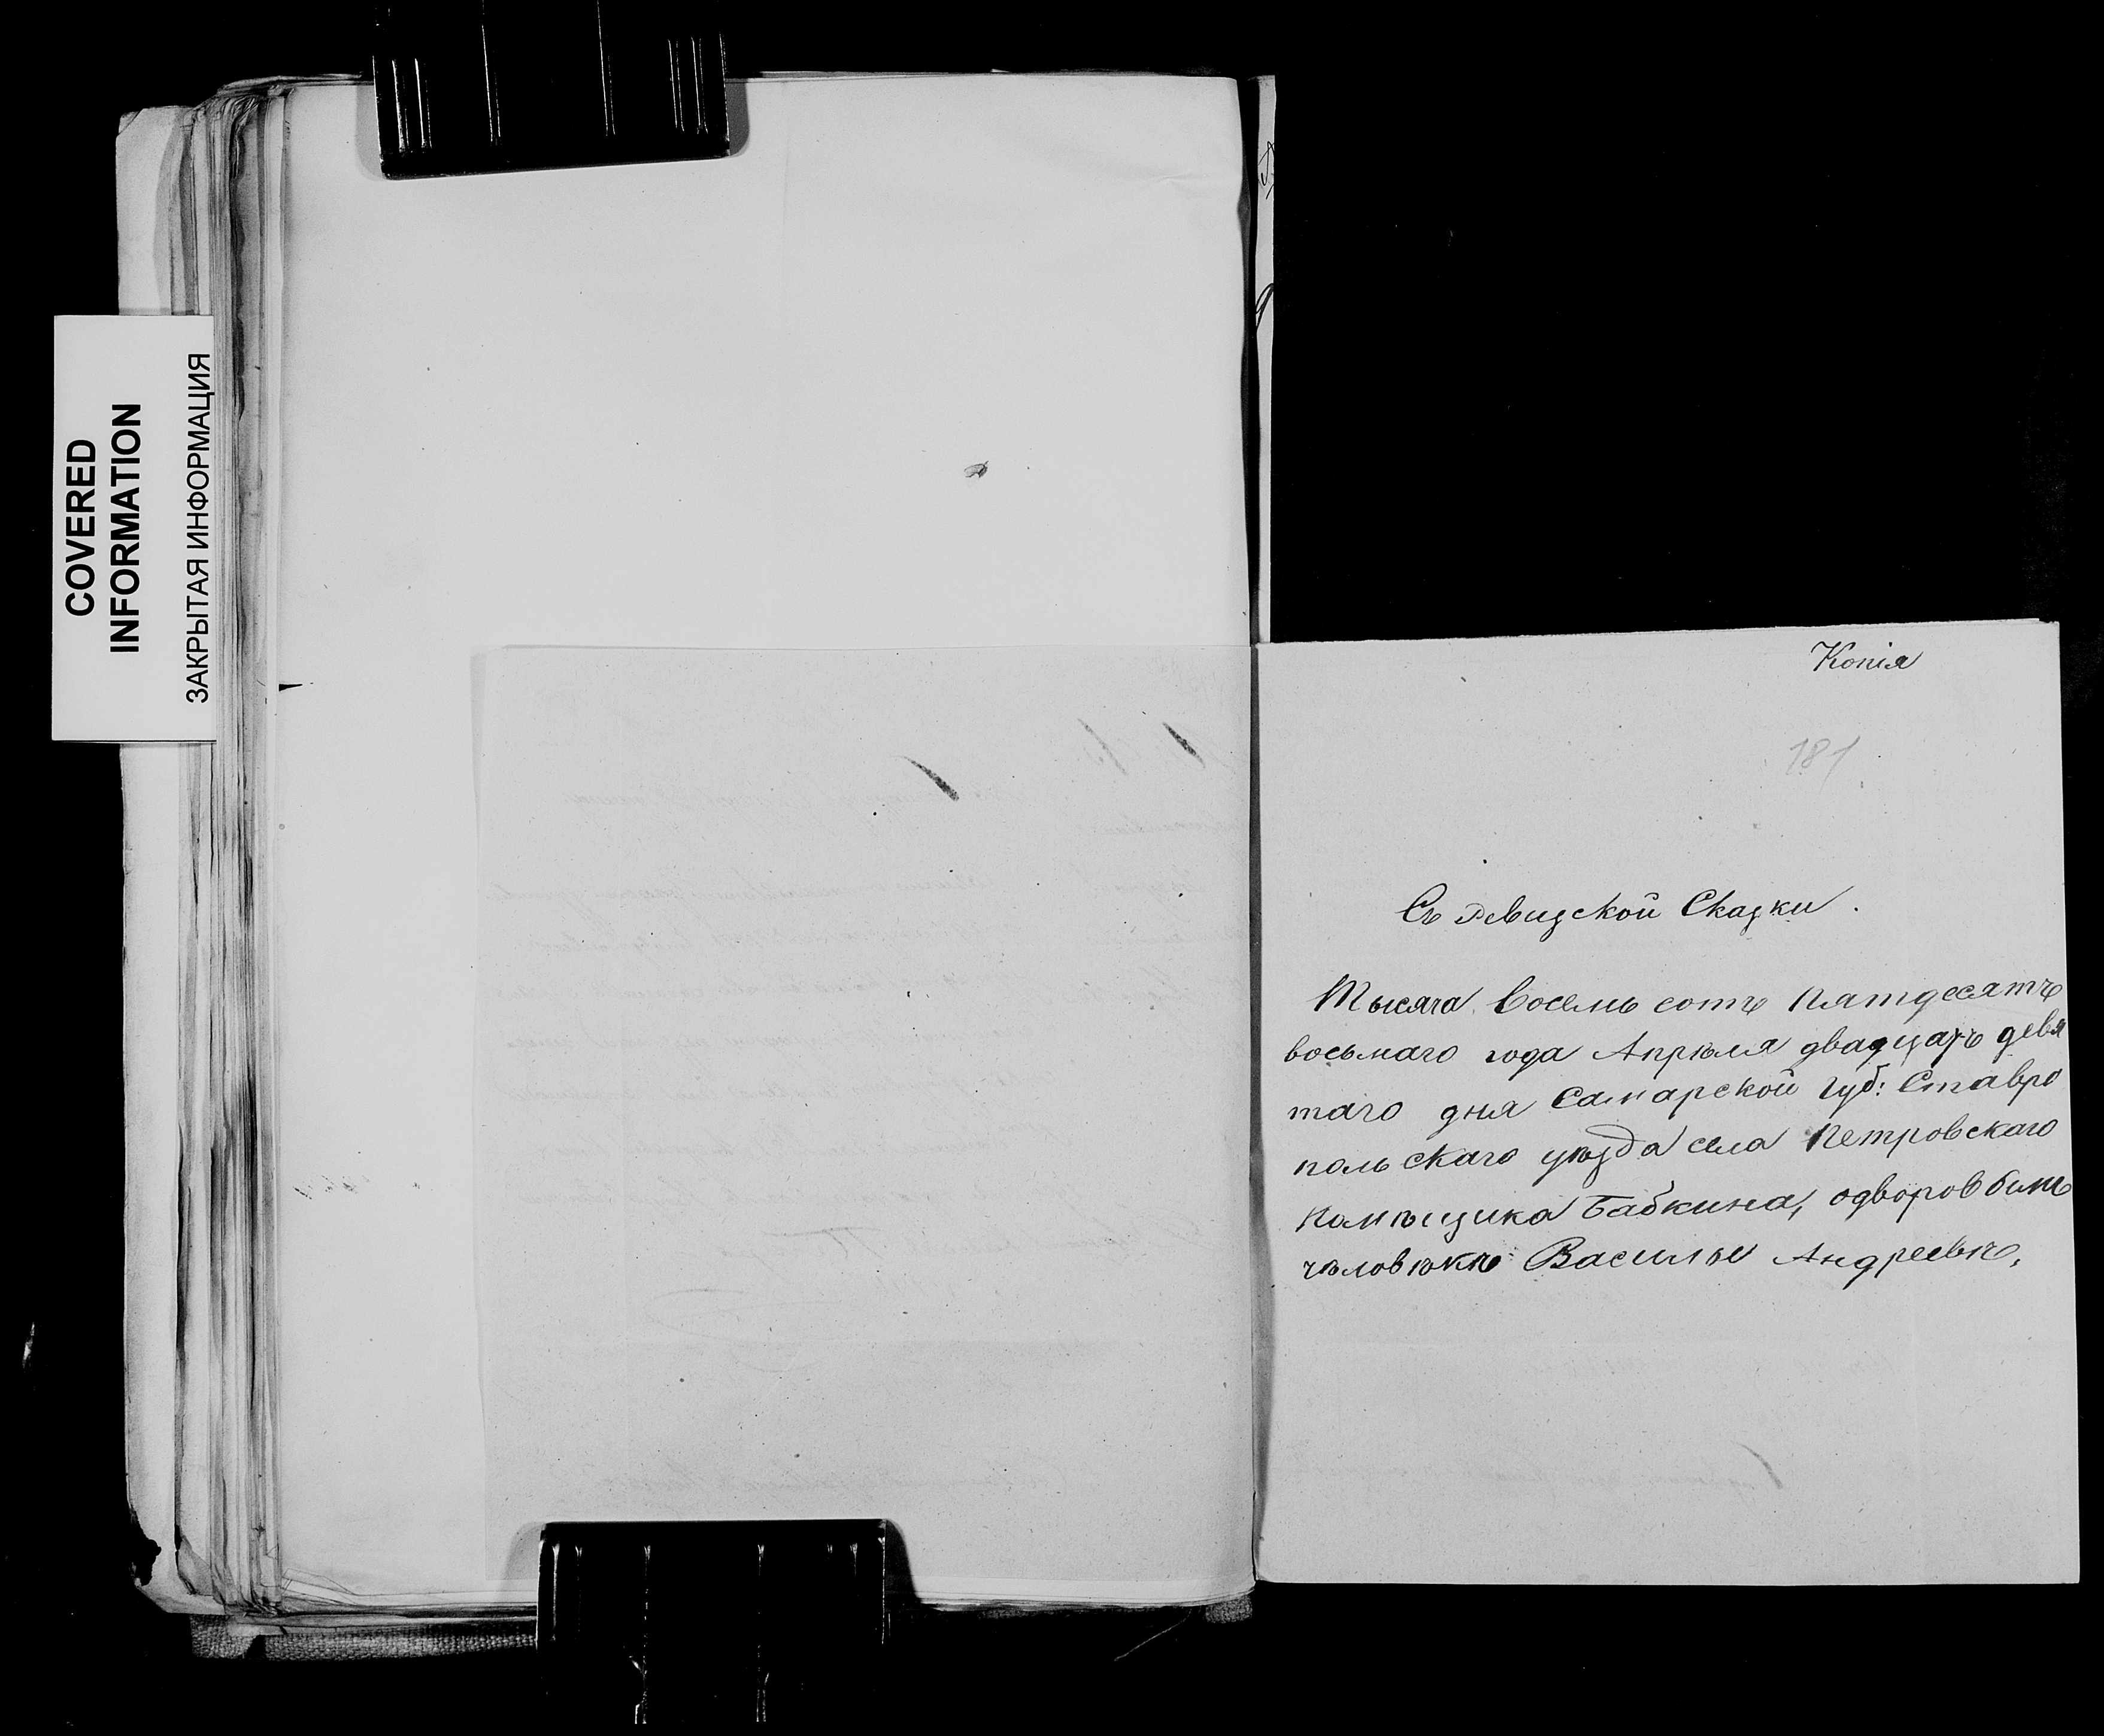 COVERED
INFORMATION
ЗАКРЫТАЯ ИНФОРМАЦИЯ
Копія
181
Съ Ревизской Сказки.
Тысяча восемь сотъ пятдесятъ
восьмаго года Апрѣля двадцать девя
таго дня Самарской Губ: Ставро
польскаго уѣзда села Петровскаго
помѣщика Бабкина,
чѣловѣкъ Василѣй Андреевъ,